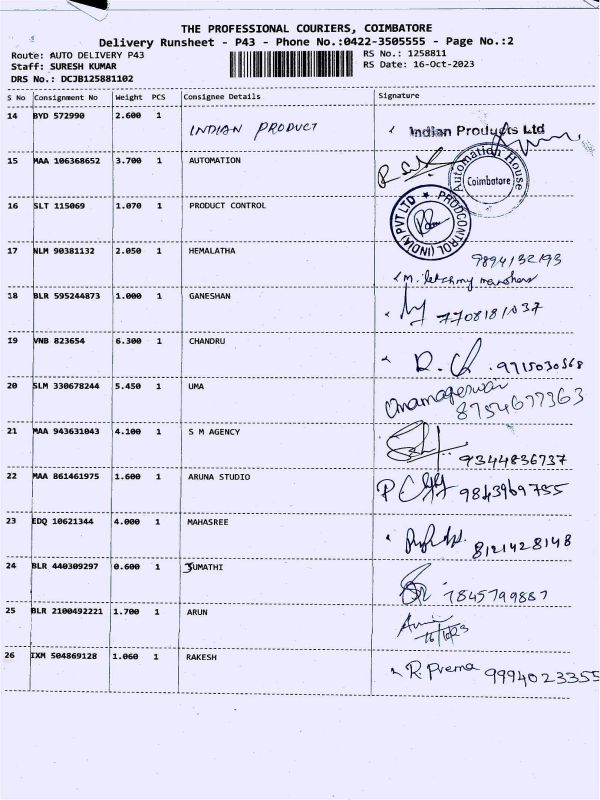 THE PROFESSIONAL COURIERS, COIMBATORE
Delivery Runsheet - P43 - Phone No.:0422-3505555 - Page No.:2
Route: AUTO DELIVERY P43
Staff: SURESH KUMAR
DRS No.: DCJB125881102
RS No.: 1258811
RS Date: 16-Oct-2023
S No Consignment No Weight PCS Consignee Details Signature
14 BYD 572990 2.600 1 INDIAN PRODUCT Indian Products Ltd
15 MAA 106368652 3.700 1 AUTOMATION
Automation House
Coimbatore
16 SLT 115069 1.070 1 PRODUCT CONTROL
PRODCONTROL (INDIA) PVT LTD
17 NLM 90381132 2.050 1 HEMALATHA 9894132193
18 BLR 595244873 1.000 1 GANESHAN 7708181037
19 VNB 823654 6.300 1 CHANDRU 9715030568
20 SLM 330678244 5.450 1 UMA 8754677363
21 MAA 943631043 4.100 1 S M AGENCY 9344836737
22 MAA 861461975 1.600 1 ARUNA STUDIO 9843969755
23 EDQ 10621344 4.000 1 MAHASREE 8121428148
24 BLR 440309297 0.600 1 SUMATHI 7845799887
25 BLR 2100492221 1.700 1 ARUN
16/10/23
26 IXM 504869128 1.060 1 RAKESH R. Prema 9994023355